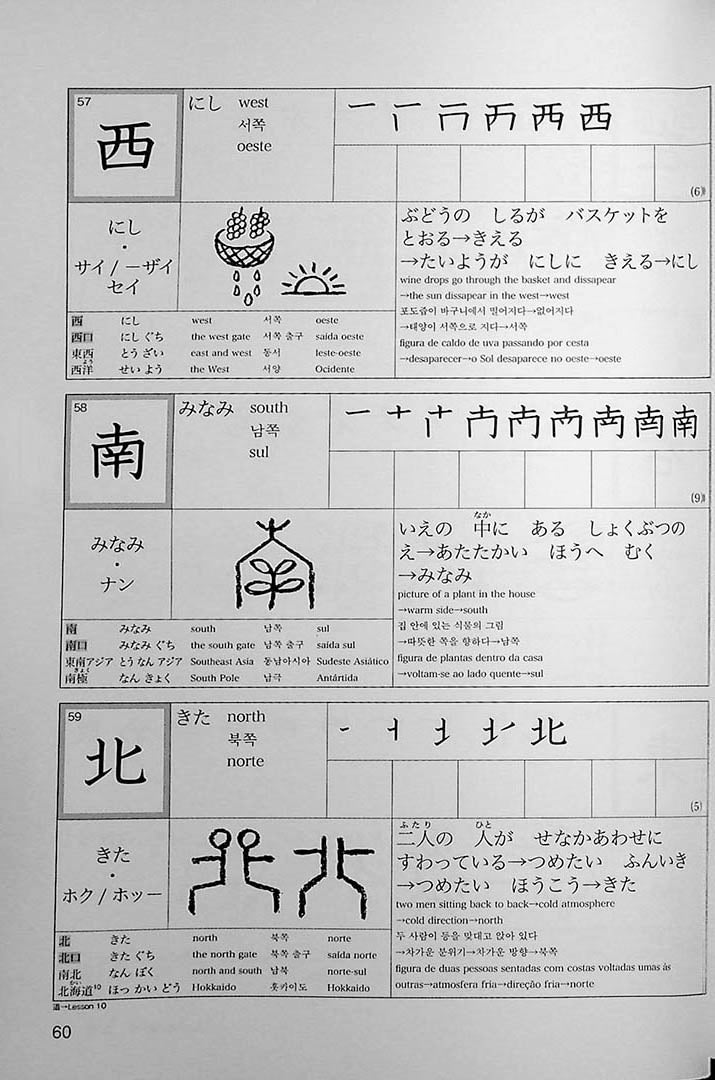 57
西
にし west
서쪽
oeste
一 西
(6)
にし
・
サイ / −ザイ
セイ
ぶどうの しるが バスケットを
とおる→きえる
→たいようが にしに きえる→にし
wine drops go through the basket and dissapear
→the sun dissapear in the west→west
포도즙이 바구니에서 떨어지다→없어지다
→태양이 서쪽으로 지다→서쪽
figura de caldo de uva passando por cesta
→desaparecer→o Sol desaparece no oeste→oeste
西 にし west 서쪽 oeste
西口 にし ぐち the west gate 서쪽 출구 saída oeste
東西 とう ざい east and west 동서 leste-oeste
よう
西洋 せい よう the West 서양 Ocidente
58
南
みなみ south
남쪽
sul
一 十 南
(9)
みなみ
・
ナン
なか
いえの 中に ある しょくぶつの
え→あたたかい ほうへ むく
→みなみ
picture of a plant in the house
→warm side→south
집 안에 있는 식물의 그림
→따뜻한 쪽을 향하다→남쪽
figura de plantas dentro da casa
→voltam-se ao lado quente→sul
南 みなみ south 남쪽 sul
南口 みなみ ぐち the south gate 남쪽 출구 saída sul
東南アジア とう なん アジア Southeast Asia 동남아시아 Sudeste Asiático
きょく
南極 なん きょく South Pole 남극 Antártida
59
北
きた north
북쪽
norte
北
(5)
きた
・
ホク / ホッー
ふたり ひと
二人の 人が せなかあわせに
すわっている→つめたい ふんいき
→つめたい ほうこう→きた
two men sitting back to back→cold atmosphere
→cold direction→north
두 사람이 등을 맞대고 앉아 있다
→차가운 분위기→차가운 방향→북쪽
figura de duas pessoas sentadas com costas voltadas umas às
outras→atmosfera fria→direção fria→norte
北 きた north 북쪽 norte
北口 きた ぐち the north gate 북쪽 출구 saída norte
南北 なん ぼく north and south 남북 norte-sul
かい
北海道10 ほっ かい どう Hokkaido 홋카이도 Hokkaido
道→Lesson 10
60